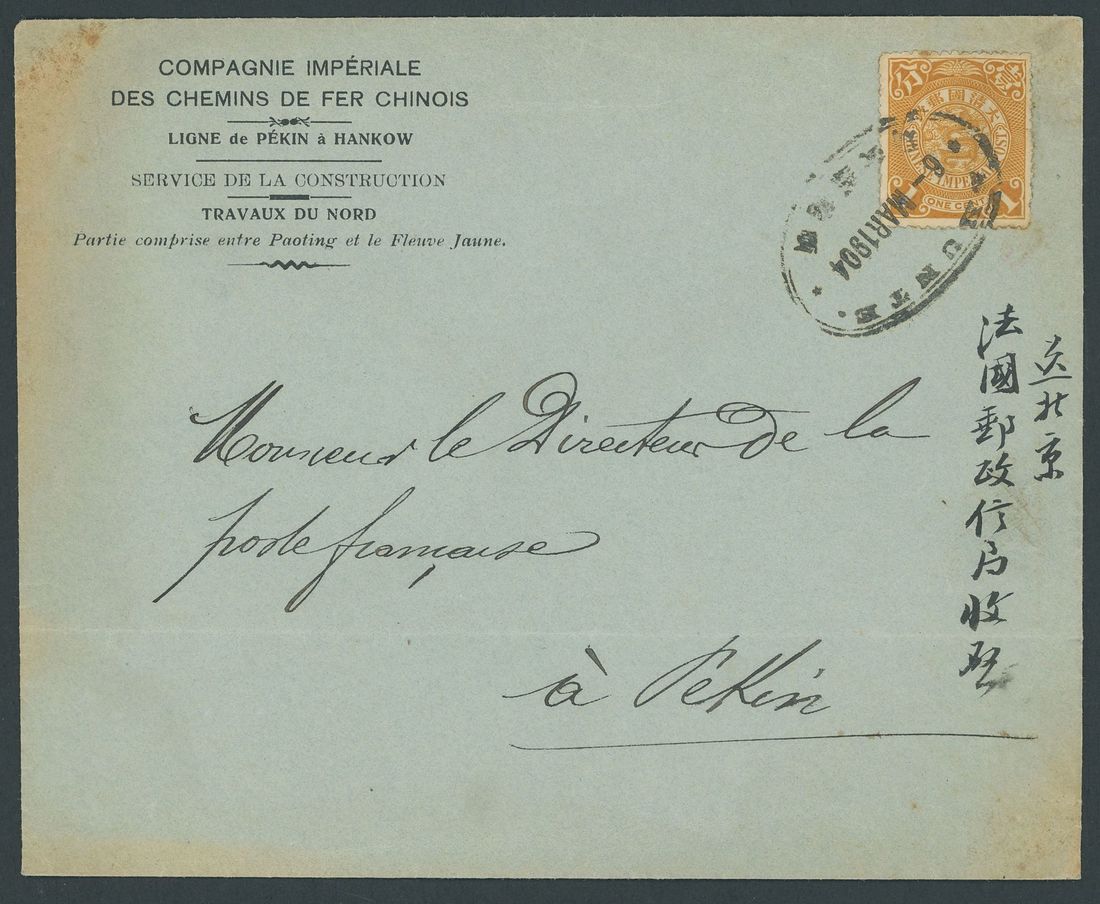 COMPAGNIE IMPÉRIALE
DES CHEMINS DE FER CHINOIS
LIGNE de PÉKIN à HANKOW
SERVICE DE LA CONSTRUCTION
TRAVAUX DU NORD
Partie comprise entre Paoting et le Fleuve Jaune.
壹 分
大清國郵政
IMPERIAL
1 ONE CENT 1
6-MAR1904
UNTE
Monsieur le Directeur de la
poste française
à Pékin
送北京
法國郵政信局收